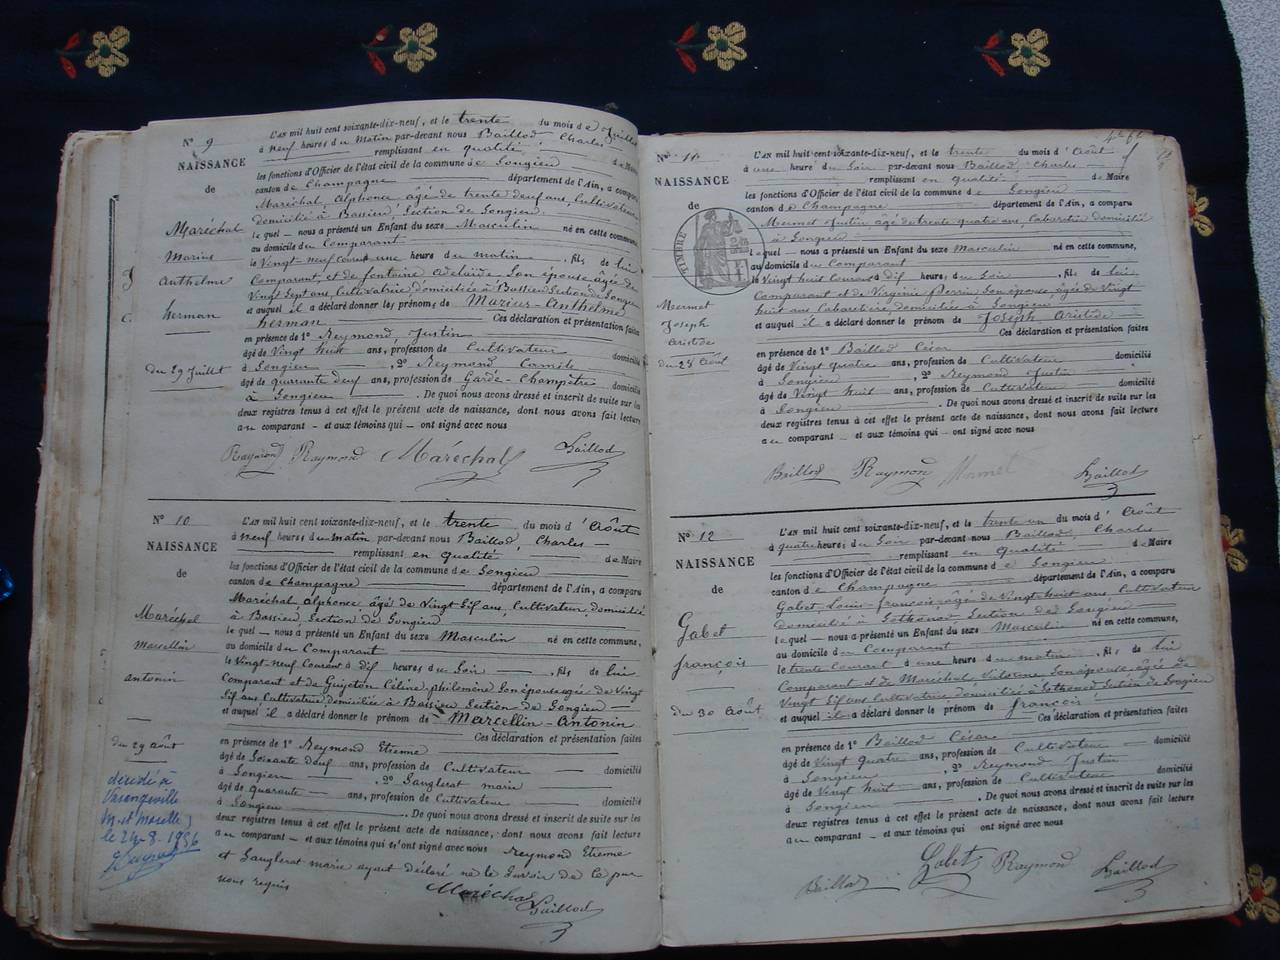 N° 9
NAISSANCE
de
Maréchal
Marius
Anthelme
herman
du 29 Juillet
L'AN mil huit cent soixante-dix-neuf, et le trente du mois de Juillet
à neuf heures du Matin par-devant nous Baillod Charles
remplissant en qualité de Maire
les fonctions d'Officier de l'état civil de la commune de Songieu
canton de Champagne département de l'Ain, a comparu
Maréchal, Alphonse âgé de trente deuf ans, Cultivateur
domicilié à Bassieu, Section de Songieu
le quel — nous a présenté un Enfant du sexe Masculin né en cette commune
au domicile du Comparant
le Vingt-neuf courant une heure du matin, fils de lui
Comparant, et de fontaine Adelaïde Son épouse âgée de
Vingt Sept ans, Cultivatrice domiciliée à Bassieu Section de Songieu
et auquel il a déclaré donner le, prénom, de Marius-Anthelme
herman Ces déclaration et présentation faites
en présence de 1° Reymond, Justin
âgé de Vingt huit ans, profession de Cultivateur domicilié
à Songieu, 2° Reymond Camille
âgé de quarante deuf ans, profession de Garde-Champêtre domicilié
à Songieu. De quoi nous avons dressé et inscrit de suite sur les
deux registres tenus à cet effet le présent acte de naissance, dont nous avons fait lecture
au comparant — et aux témoins qui — ont signé avec nous
Raymond Raymond Maréchal Baillod
N° 10
NAISSANCE
de
Maréchal
Marsellin
antonin
du 29 août
décédé à
le 24-8-1956
L'AN mil huit cent soixante-dix-neuf, et le trente du mois d'Août
à neuf heures du matin par-devant nous Baillod, Charles
remplissant en qualité de Maire
les fonctions d'Officier de l'état civil de la commune de Songieu
canton de Champagne département de l'Ain, a comparu
Maréchal alphonse âgé de Vingt Sif ans, Cultivateur domicilié
à Bassieu, Section de Songieu
le quel — nous a présenté un Enfant du sexe Masculin né en cette commune,
au domicile du Comparant
le Vingt neuf Courant à dif heures du Soir, fils de lui
Comparant et de Guijeton Céline philomène Son épouse agée de Vingt
Sif ans, Cultivatrice domiciliée à Bassieu Section de Songieu
et auquel il a déclaré donner le prénom de Marcellin-Antonin
Ces déclaration et présentation faites
en présence de 1° Reymond Etienne
âgé de Soixante deuf ans, profession de Cultivateur domicilié
à Songieu, 2° Sanglerat marie
âgé de Quarante ans, profession de Cultivateur domicilié
à Songieu. De quoi nous avons dressé et inscrit de suite sur les
deux registres tenus à cet effet le présent acte de naissance, dont nous avons fait lecture
au comparant — et aux témoins qui n'ont signé avec nous Reymond Etienne
et Sanglerat marie ayant déclaré ne le Savoir de ce par
nous requis
Maréchal Baillod
N° 11
NAISSANCE
de
TIMBRE
Mermet
Joseph
Aristide
du 28 Août
L'AN mil huit cent soixante-dix-neuf, et le trente du mois d'Août
à une heure du Soir par-devant nous Baillod, Charles
remplissant en qualité de Maire
les fonctions d'Officier de l'état civil de la commune de Songieu
canton de Champagne département de l'Ain, a comparu
Mermet Justin, âgé de trente quatre ans, Cabaretier domicilié
à Songieu
lequel — nous a présenté un Enfant du sexe Masculin né en cette commune,
au domicile du Comparant
le Vingt huit Courant dif heures, du Soir, fils de lui
Comparant et de Virginie Perrin Son épouse, âgée de Vingt
huit ans Cabaretière, domiciliée à Songieu
et auquel il a déclaré donner le prénom de Joseph Aristide
Ces déclaration et présentation faites
en présence de 1° Baillod César
âgé de Vingt quatre ans, profession de Cultivateur domicilié
à Songieu, 2° Reymond Justin
âgé de Vingt huit ans, profession de Cultivateur domicilié
à Songieu. De quoi nous avons dressé et inscrit de suite sur les
deux registres tenus à cet effet le présent acte de naissance, dont nous avons fait lecture
au comparant — et aux témoins qui — ont signé avec nous
Baillod Raymond Mermet Baillod
N° 12
NAISSANCE
de
Gabet
françois
du 30 Août
L'AN mil huit cent soixante-dix-neuf, et le trente un du mois d'Août
à quatre heures du Soir par-devant nous Baillod Charles
remplissant en qualité de Maire
les fonctions d'Officier de l'état civil de la commune de Songieu
canton de Champagne département de l'Ain, a comparu
Gabet Louis-françois âgé de Vingt huit ans, Cultivateur
domicilié à Sothonod Section de Songieu
le quel — nous a présenté un Enfant du sexe Masculin né en cette commune,
au domicile du Comparant
le trente Courant à une heure du matin, fils de lui
Comparant et de Maréchal, Son épouse âgée de
Vingt Sif ans Cultivatrice domiciliée à Sothonod Section de Songieu
et auquel il a déclaré donner le prénom de françois
Ces déclaration et présentation faites
en présence de 1° Baillod César
âgé de Vingt quatre ans, profession de Cultivateur domicilié
à Songieu, 2° Reymond Justin
âgé de Vingt huit ans, profession de Cultivateur domicilié
à Songieu. De quoi nous avons dressé et inscrit de suite sur les
deux registres tenus à cet effet le présent acte de naissance, dont nous avons fait lecture
au comparant — et aux témoins qui ont signé avec nous
Baillod Gabet Raymond Baillod